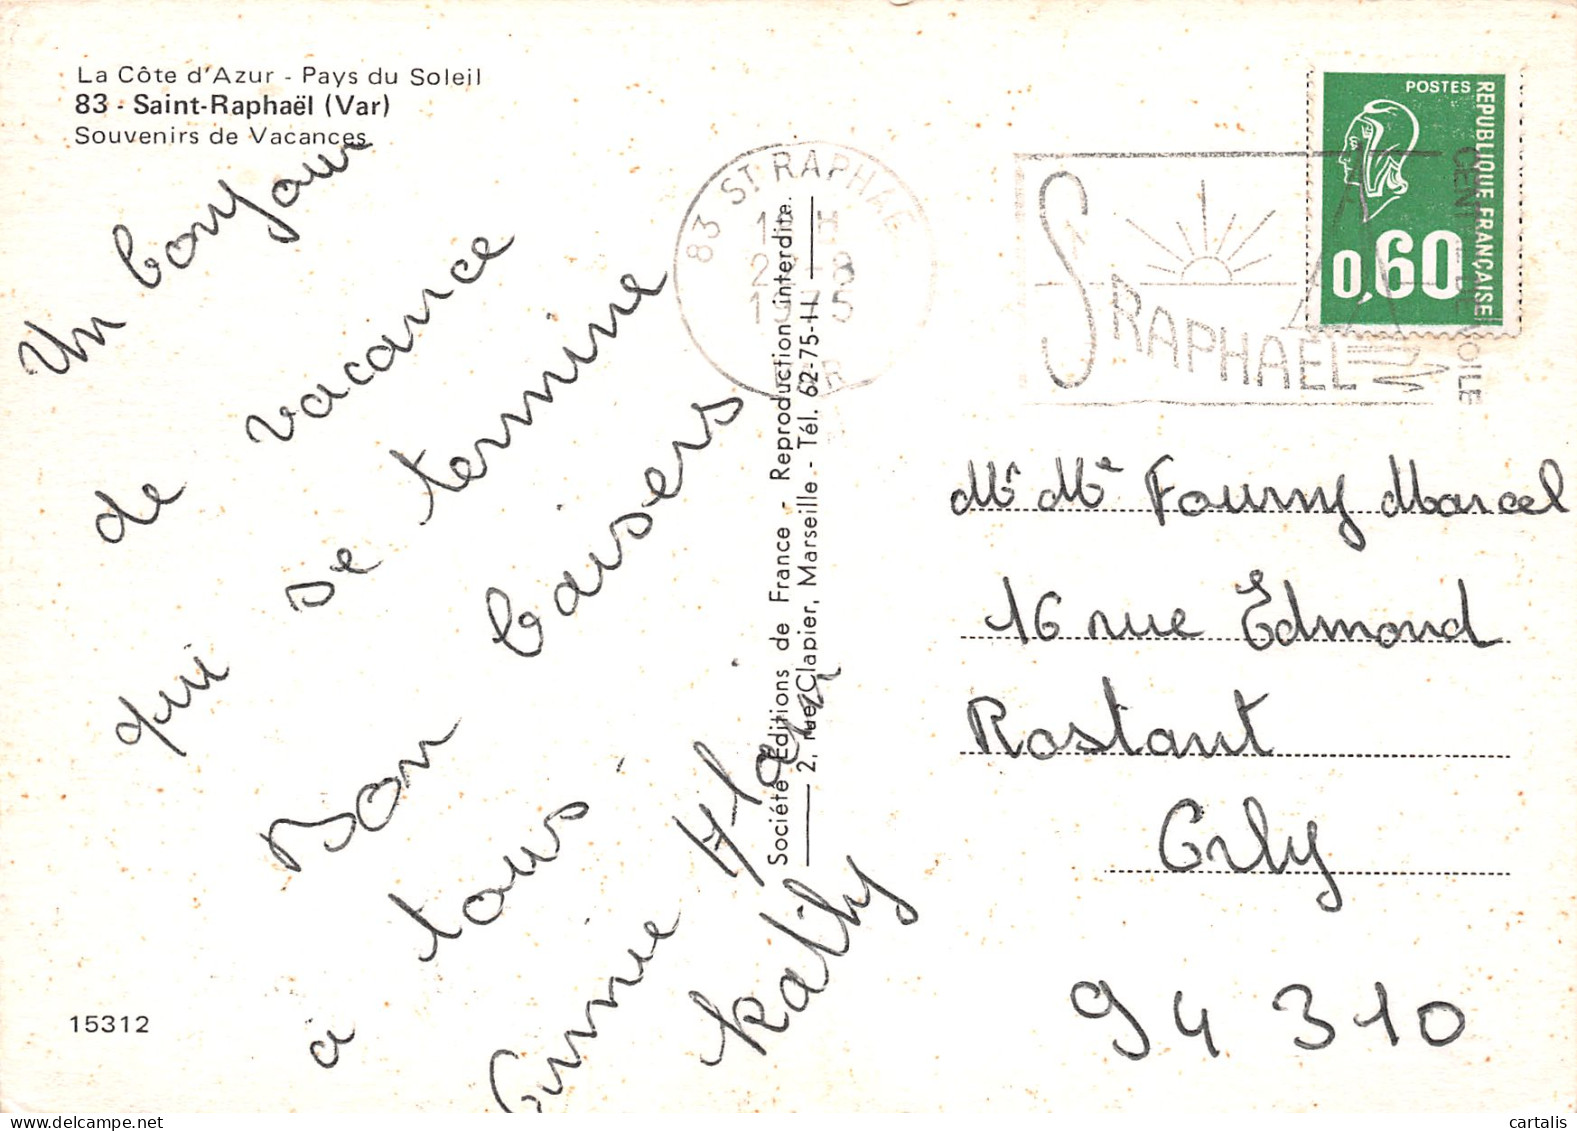 La Côte d'Azur - Pays du Soleil
83 - Saint-Raphaël (Var)
Souvenirs de Vacances
Un bonjour
de vacance
qui se termine
Bon baisers
à tous.
Annie Alain
Kathy
15312
Société Editions de France - Reproduction interdite.
2, rue Clapier, Marseille - Tél. 62-75-11
83 ST RAPHAEL
1975
ST RAPHAEL
POSTES
REPUBLIQUE FRANÇAISE
0,60
Mr Me Fourny Marcel
16 rue Edmond
Rostant
Orly
94310
www.delcampe.net
cartalis